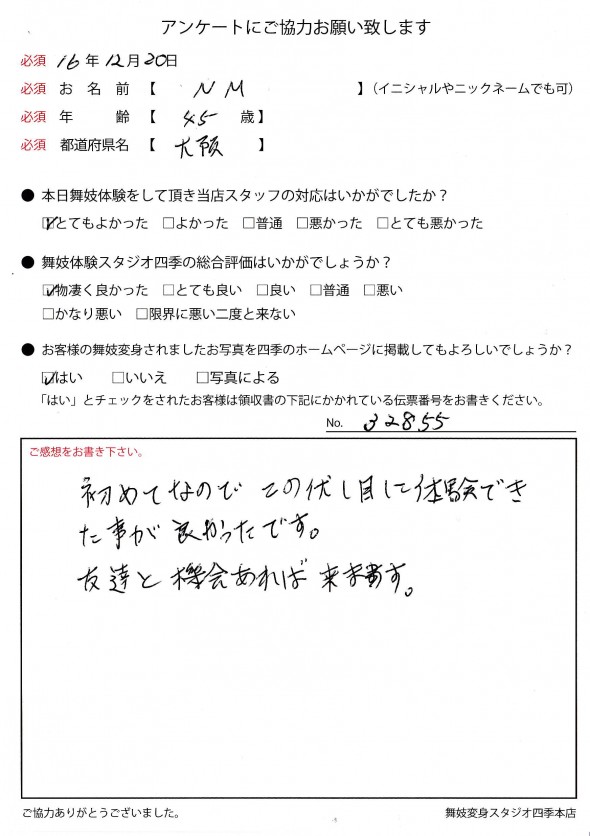 アンケートにご協力お願い致します
必須 16年12月20日
必須 お 名 前 【 NM 】（イニシャルやニックネームでも可）
必須 年 齢 【 45 歳】
必須 都道府県名 【 大阪 】
● 本日舞妓体験をして頂き当店スタッフの対応はいかがでしたか？
☑とてもよかった □よかった □普通 □悪かった □とても悪かった
● 舞妓体験スタジオ四季の総合評価はいかがでしょうか？
☑物凄く良かった □とても良い □良い □普通 □悪い
□かなり悪い □限界に悪い二度と来ない
● お客様の舞妓変身されましたお写真を四季のホームページに掲載してもよろしいでしょうか？
☑はい □いいえ □写真による
「はい」とチェックをされたお客様は領収書の下記にかかれている伝票番号をお書きください。
No. 32855
ご感想をお書き下さい。
初めてなので この 体験でき
た事が 良かったです。
友達と 機会あれば 来ます。
ご協力ありがとうございました。
舞妓変身スタジオ四季本店